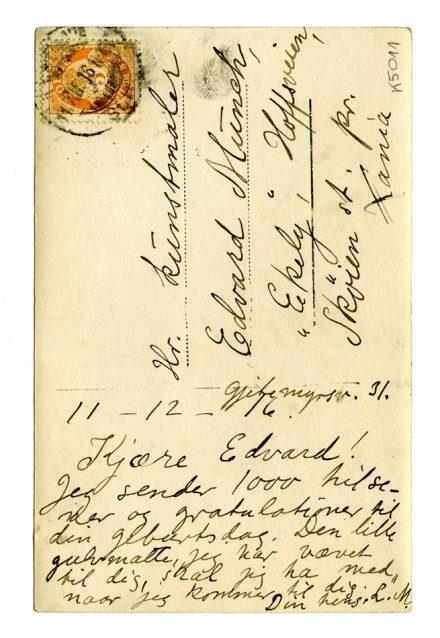 K5011
Hr. kunstmaler
Edvard Munch,
"Ekely," Hoffsveien,
Skøien st. pr.
Xania
11 - 12 - 16.
Kjære Edvard!
Jeg sender 1000 hilse-
ner og gratulationer til
din geburtsdag. Den lille
gulvmatte, jeg har vævet
til dig, skal jeg ha med,
naar jeg kommer til dig.
Din heng. L. M.